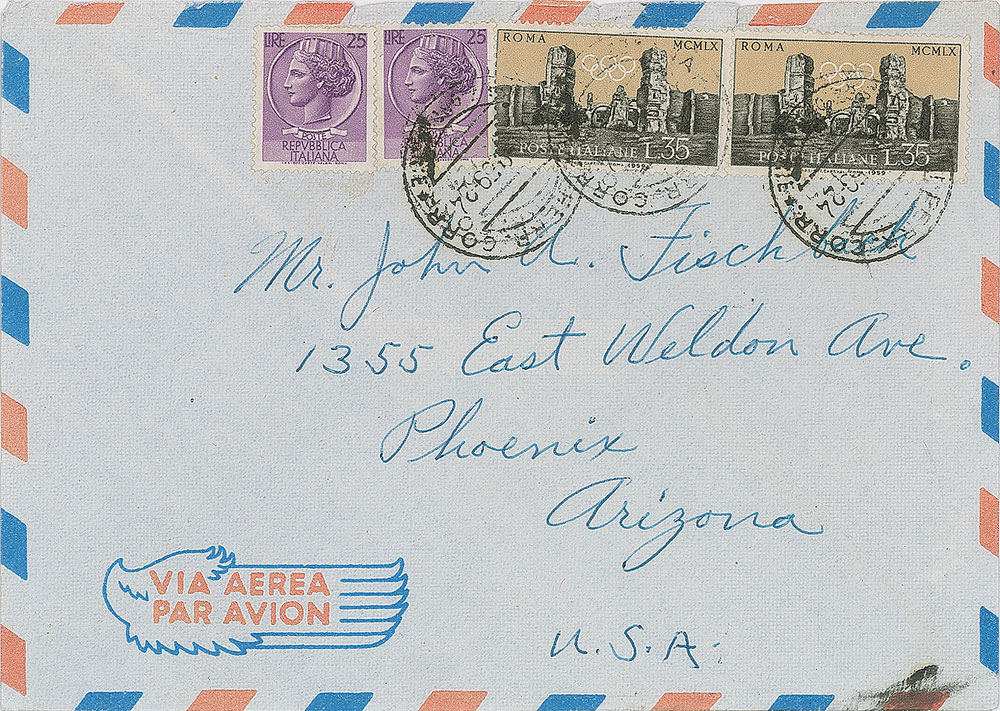 LIRE 25
POSTE
REPVBBLICA
ITALIANA
LIRE 25
REPVBBLICA
ROMA MCMLX
POSTE ITALIANE L.35
ROMA MCMLX
POSTE ITALIANE L.35
1959
FERR. CORR.
FERR. CORR.
Mr. John A. Fischbach
1355 East Weldon Ave.
Phoenix
Arizona
U.S.A.
VIA AEREA
PAR AVION